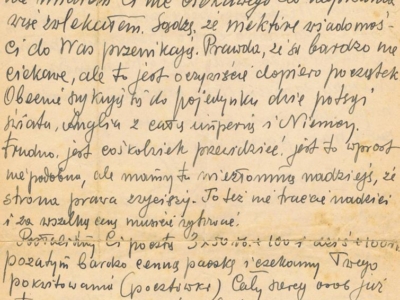 nie miałem Ci nic ciekawego do napisania
więc zwlekałem. Sądzę, że niektóre wiadomoś-
ci do Was przenikają. Prawda, że są bardzo nie
ciekawe, ale to jest oczywiście dopiero początek
Obecnie szykują się do pojedynku dwie potęgi
świata, Anglia z całą imperią i Niemcy.
Trudno jest cośkolwiek przewidzieć, jest to wprost
niepodobna, ale mamy tu niezłomną nadzieję, że
strona prawa zwycięży. To też nie tracę nadziei
i za wszelką cenę musisz
Posłaliśmy Ci pocztą 3x50
pozatym bardzo cenną paczkę i czekamy Twego
pokwitowania (pocztówki) Cały szereg osób już